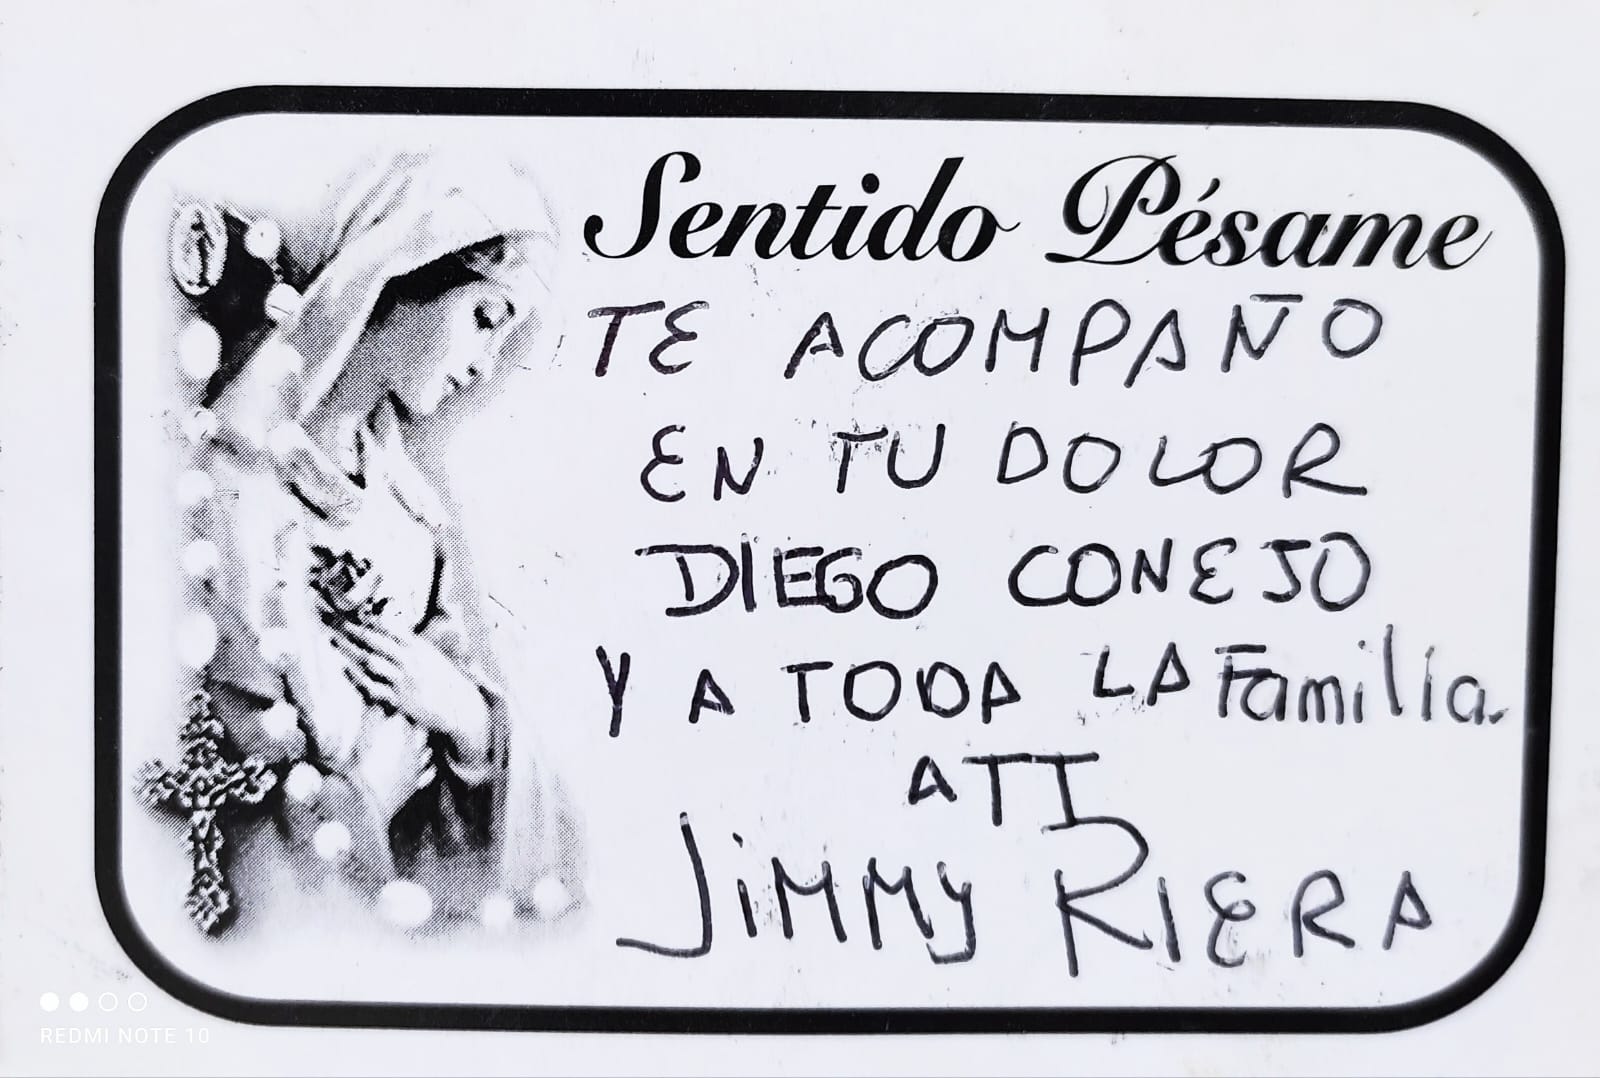 Sentido Pésame
TE ACOMPAÑO
EN TU DOLOR
DIEGO CONEJO
Y A TODA LA Familia.
ATT
JiMMY RIERA
REDMI NOTE 10